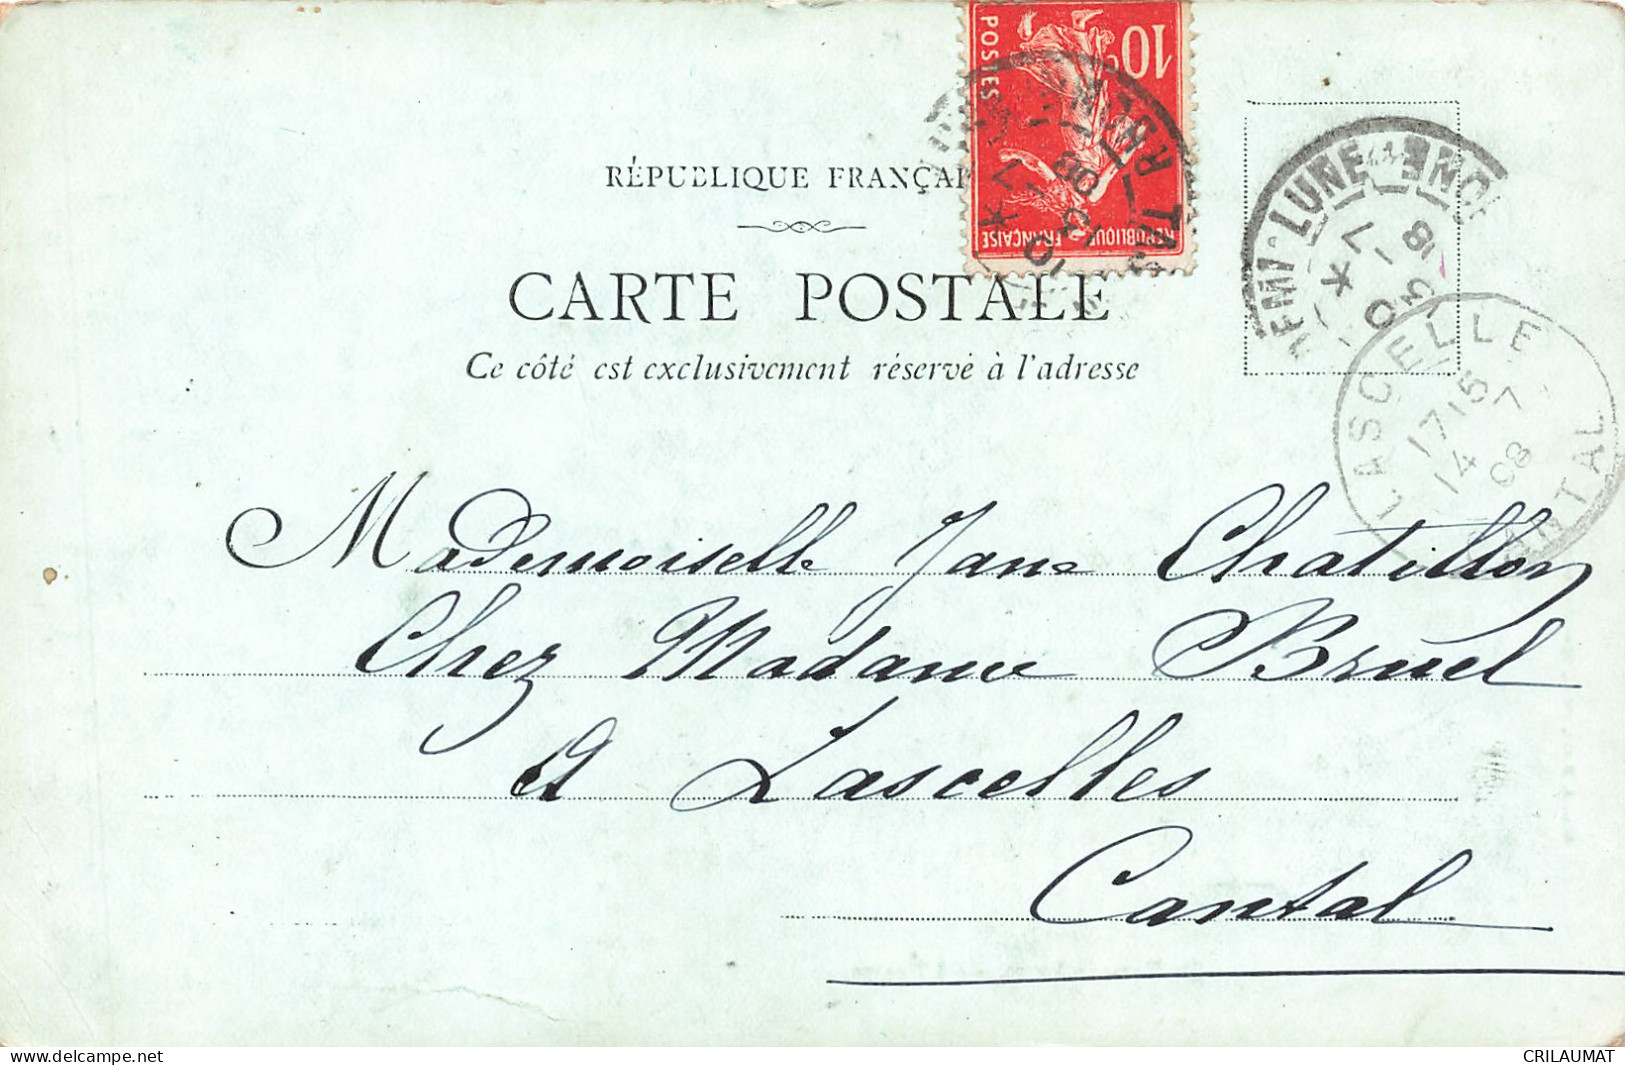 RÉPUBLIQUE FRANÇAI
CARTE POSTALE
Ce côté est exclusivement réservé à l'adresse
10c
POSTES
REPUBLIQUE FRANÇAISE
7
13
08
LUNE
7
LASCELLE
17 15
14 7
08
CANTAL
Mademoiselle Jane Chatillon
Chez Madame Bruel
A Lascelles
Cantal
www.delcampe.net
CRILAUMAT